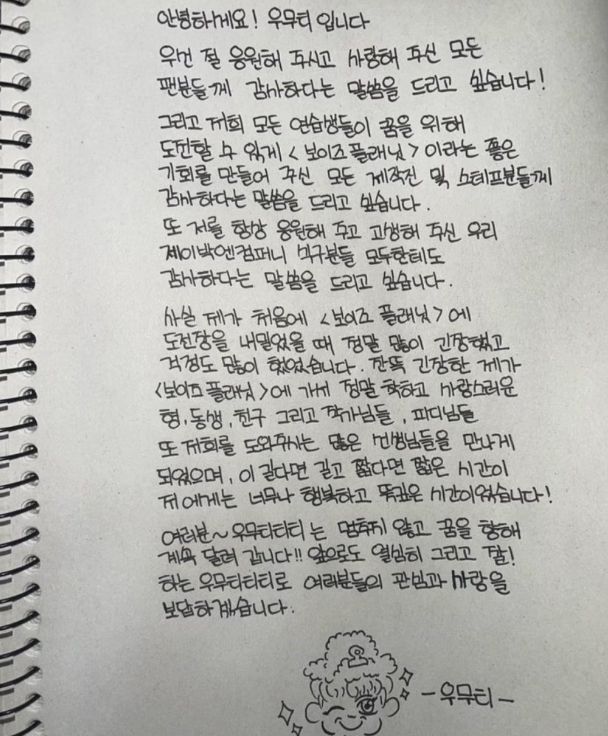 안녕하세요! 우무티 입니다
우선 절 응원해 주시고 사랑해 주신 모든
팬분들께 감사하다는 말씀을 드리고 싶습니다!
그리고 저희 모든 연습생들이 꿈을 위해
도전할 수 있게 <보이즈 플래닛> 이라는 좋은
기회를 만들어 주신 모든 제작진 및 스태프분들께
감사하다는 말씀을 드리고 싶습니다.
또 저를 항상 응원해 주고 고생해 주신 우리
제이박엔컴퍼니 식구분들 모두한테도
감사하다는 말씀을 드리고 싶습니다.
사실 제가 처음에 <보이즈 플래닛>에
도전장을 내밀었을 때 정말 많이 긴장했고
걱정도 많이 했었습니다. 잔뜩 긴장한 제가
<보이즈 플래닛>에 가서 정말 착하고 사랑스러운
형, 동생, 친구 그리고 작가님들, 피디님들
또 저희를 도와주시는 많은 선생님들을 만나게
되었으며, 이 길다면 길고 짧다면 짧은 시간이
저에게는 너무나 행복하고 뜻깊은 시간이었습니다!
여러분~ 우무티티티 는 멈추지 않고 꿈을 향해
계속 달려 갑니다!! 앞으로도 열심히 그리고 잘!
하는 우무티티티로 여러분들의 관심과 사랑을
보답하겠습니다.
- 우무티 -